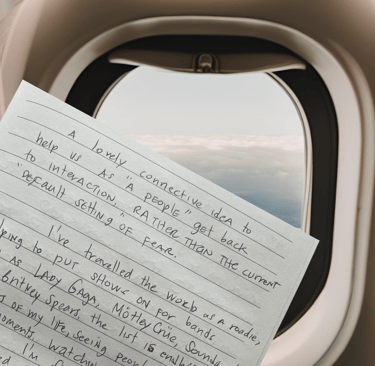 A lovely connective idea to
help us AS "A PEOPLE" get back
to INTERACTION, RATHER THAN THE CURRENT
"DEFAULT SETTING" OF FEAR.
I've travelled the WORLD AS A roadie,
ping to PUT SHOWS ON FOR bands
AS LADY GAGA, MÖTLEY CRÜE, Sound
Britney Spears, the list is endl
OF my life, seeing peop
moments, watchin
I'm